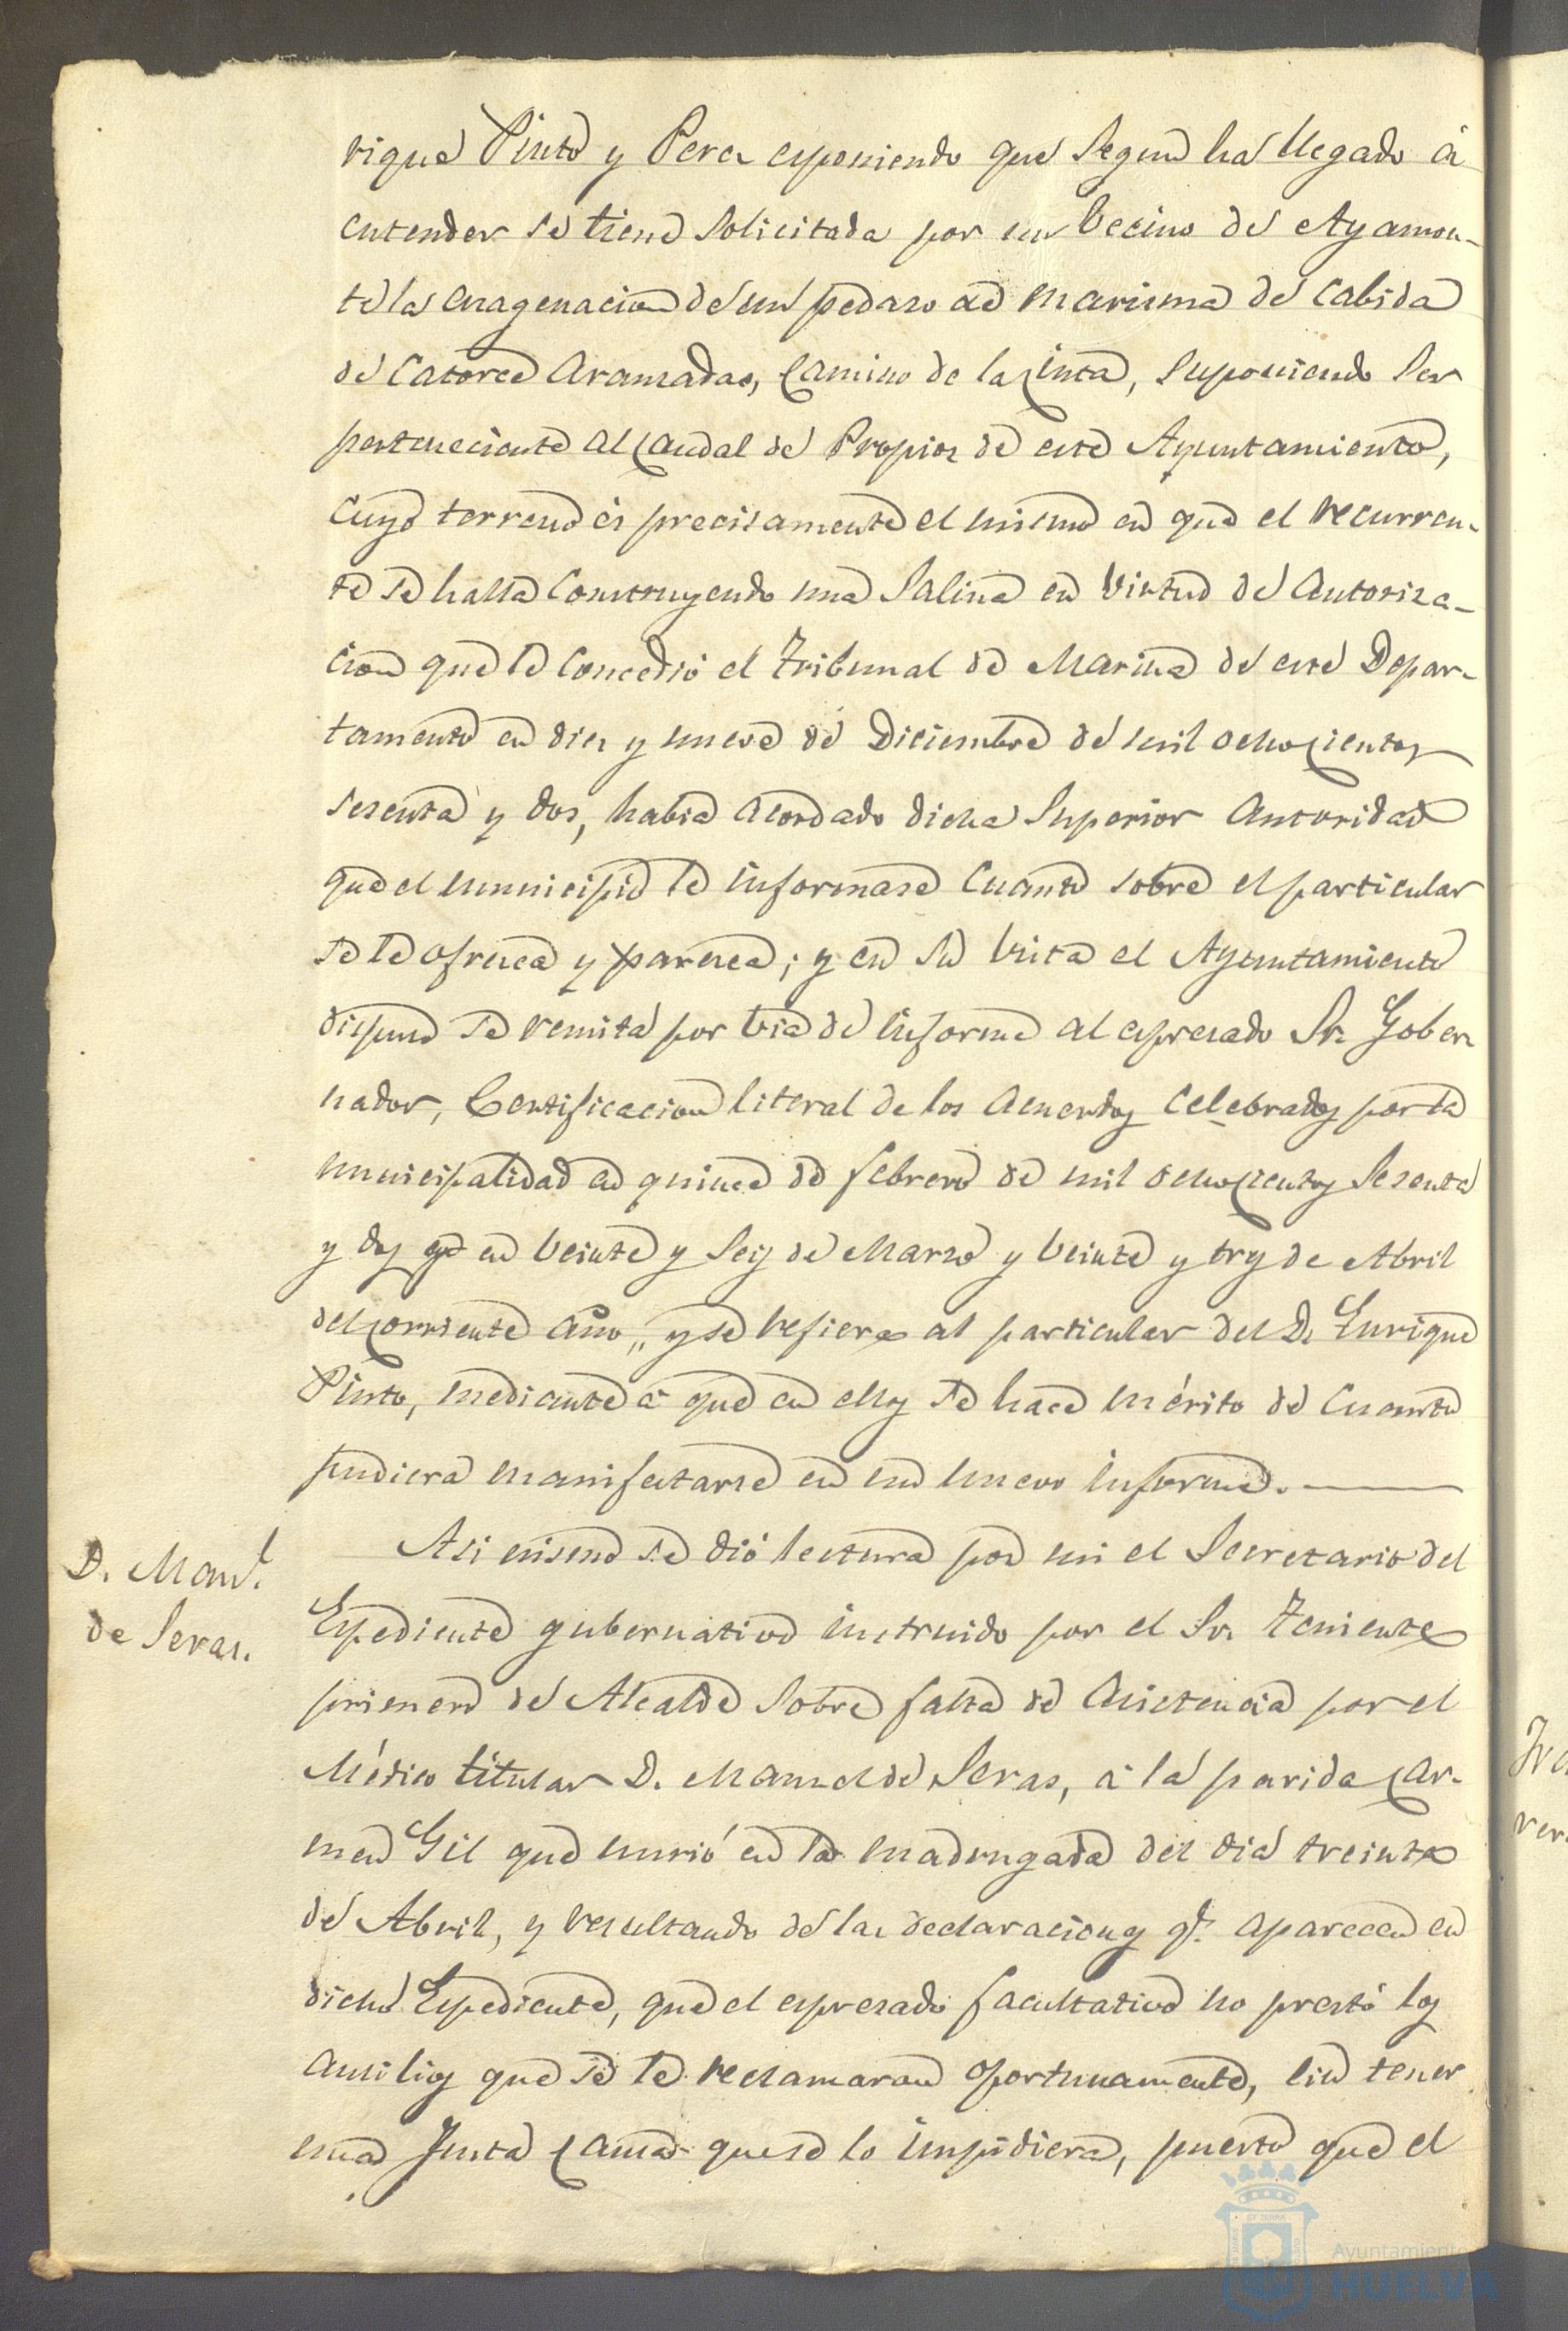 rique Pinto y Perez esponiendo que segun ha llegado á
entender se tiene solicitada por un vecino de Ayamon-
te la enagenacion de un pedazo de marisma de cabida
de catorce aranzadas, camino de la Cinta, suponiendo ser
perteneciente al caudal de Propios de este Ayuntamiento,
cuyo terreno es precisamente el mismo en que el recurren-
te se halla construyendo una salina en virtud de autoriza-
cion que le concedió el Tribunal de Marina de este Depar-
tamento en diez y nueve de Diciembre de mil ochocientos
sesenta y dos, habia acordado dicha Superior autoridad
que el municipio le informase cuanto sobre el particular
se le ofrezca y parezca; y en su vista el Ayuntamiento
dispuso se remita por via de informe al espresado Sr. Gober
nador, certificacion literal de los acuerdos celebrados por la
municipalidad en quince de febrero de mil ochocientos sesenta
y dos y en veinte y seis de Marzo y veinte y tres de Abril
del corriente año, y se refiere al particular del D. Enrique
Pinto, mediante á que en ellos se hace mérito de cuanto
pudiera manifestarse en un nuevo informe.
D. Manl.
de Seras.
Asi mismo se dió lectura por mi el Secretario del
Espediente gubernativo instruido por el Sr. Teniente
primero de Alcalde sobre falta de asistencia por el
Médico titular D. Manuel de Seras, á la parida Car-
men Gil que murió en la madrugada del dia treinta
de Abril, y resultando de las declaraciones qe. aparecen en
dicho Espediente, que el espresado facultativo no prestó los
ausilios que se le reclamaron oportunamente, sin tener
una justa causa que se lo impidiera, puesto que el
Ayuntamiento
HUELVA